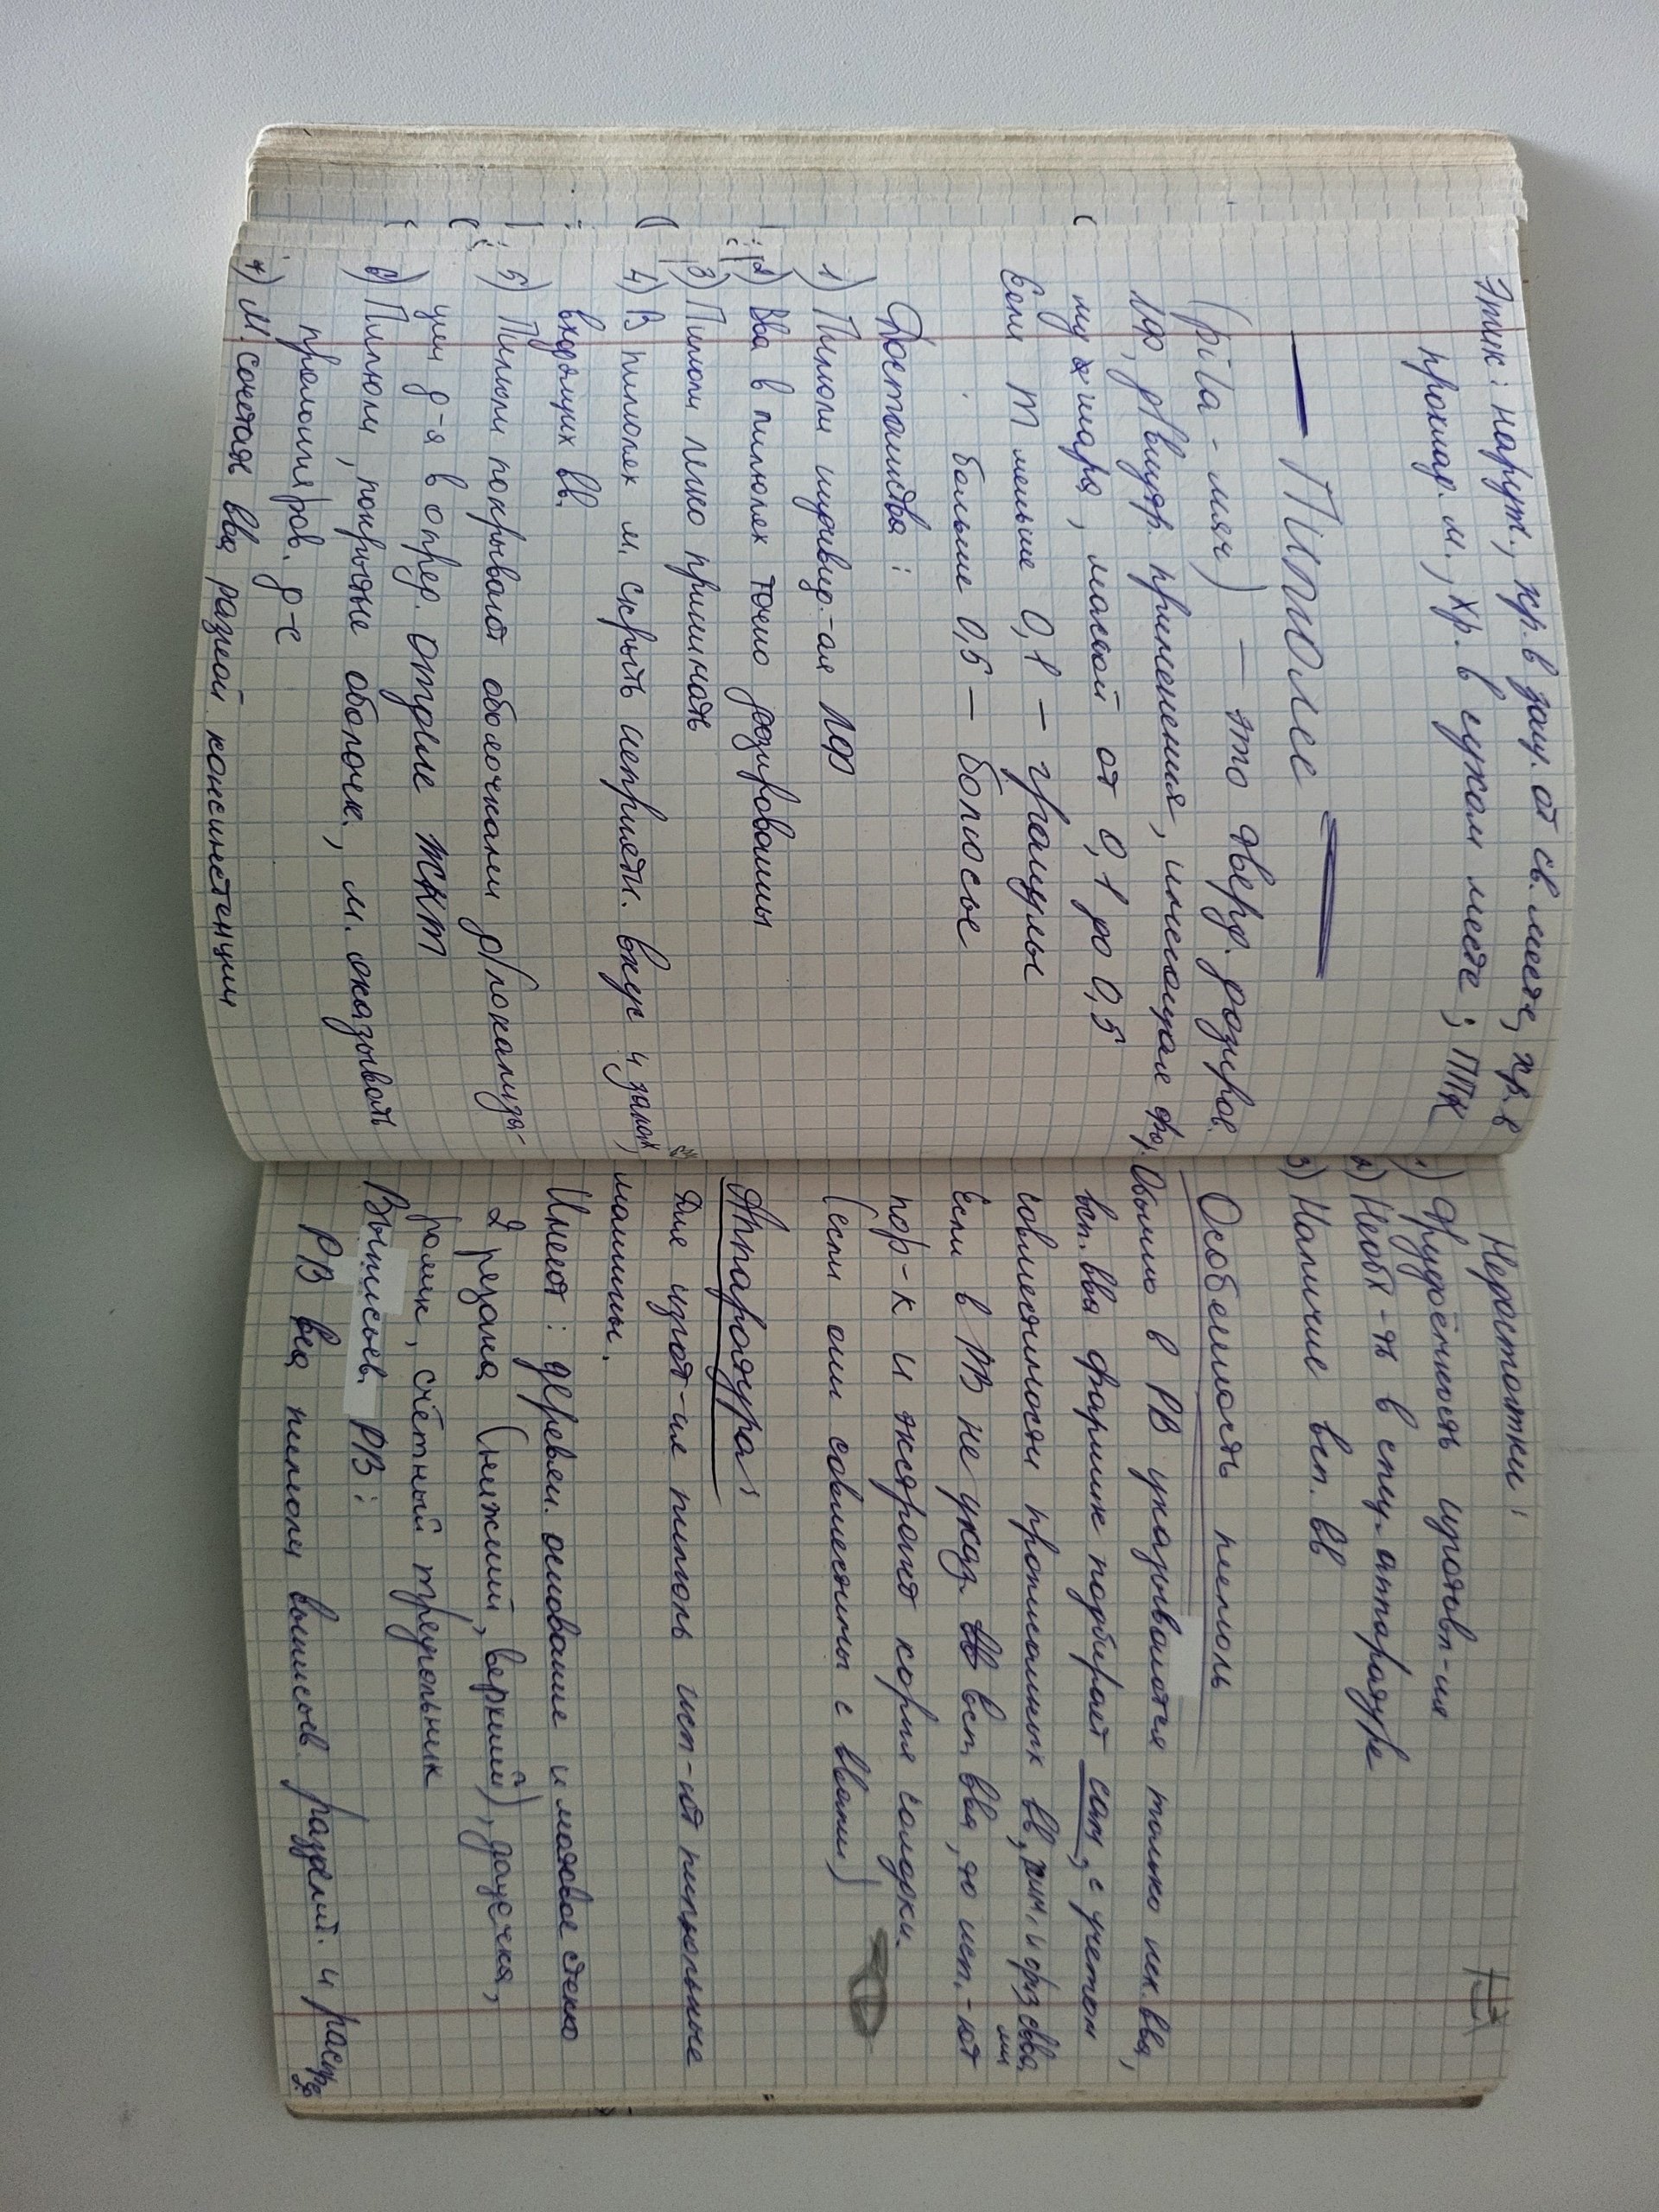 Этик: наруж., хр. в защ. от св. месте, хр. в
прохлад. м., хр. в сухом месте; ППК
— Пилюли —
(pila - мяч) — это тверд. дозиров.
ЛФ, д/внутр. применения, имеющая фор
му шара, массой от 0,1 до 0,5
Если m меньше 0,1 — гранулы
больше 0,5 — болюсы
Достоинства:
1) Пилюли индивид-ая ЛФ
2) Вва в пилюлях точно дозированы
3) Пилюли легко принимать
4) В пилюлях м. скрыть неприятн. вкус и запах,
входящих вв.
5) Пилюли покрывают оболочками д/локализа-
ции д-я в опред. отделе ЖКТ
6) Пилюли, покрытые оболочк., м. оказывать
пролонгиров. д-е
7) М. сочетать вва разной консинстенции
Недостатки:
1) Трудоёмкость изготовл-ия
2) Необх-ть в спец. аппаратуре
3) Наличие всп. вв
Особенность пилюль
Обычно в РВ указываются только лек. вва,
всп. вва фармик подбирает сам, с учетом
совместимости прописанных вв, хим. и физ свва
ми
Если в РВ не указ. всп. вва, то исп.-ют
пор-к и экстракт корня солодки.
(если они совместимы с ввами)
Аппаратура:
Для изгот-ия пилюль исп-ют пилюльные
машины.
Имеют: деревян. основание и матовое стекло
2 резака (нижний, верхний), дощечка,
ролик, счётный треугольник
Выписыв. РВ:
РВ на пилюли выписыв. раздел. и распр.